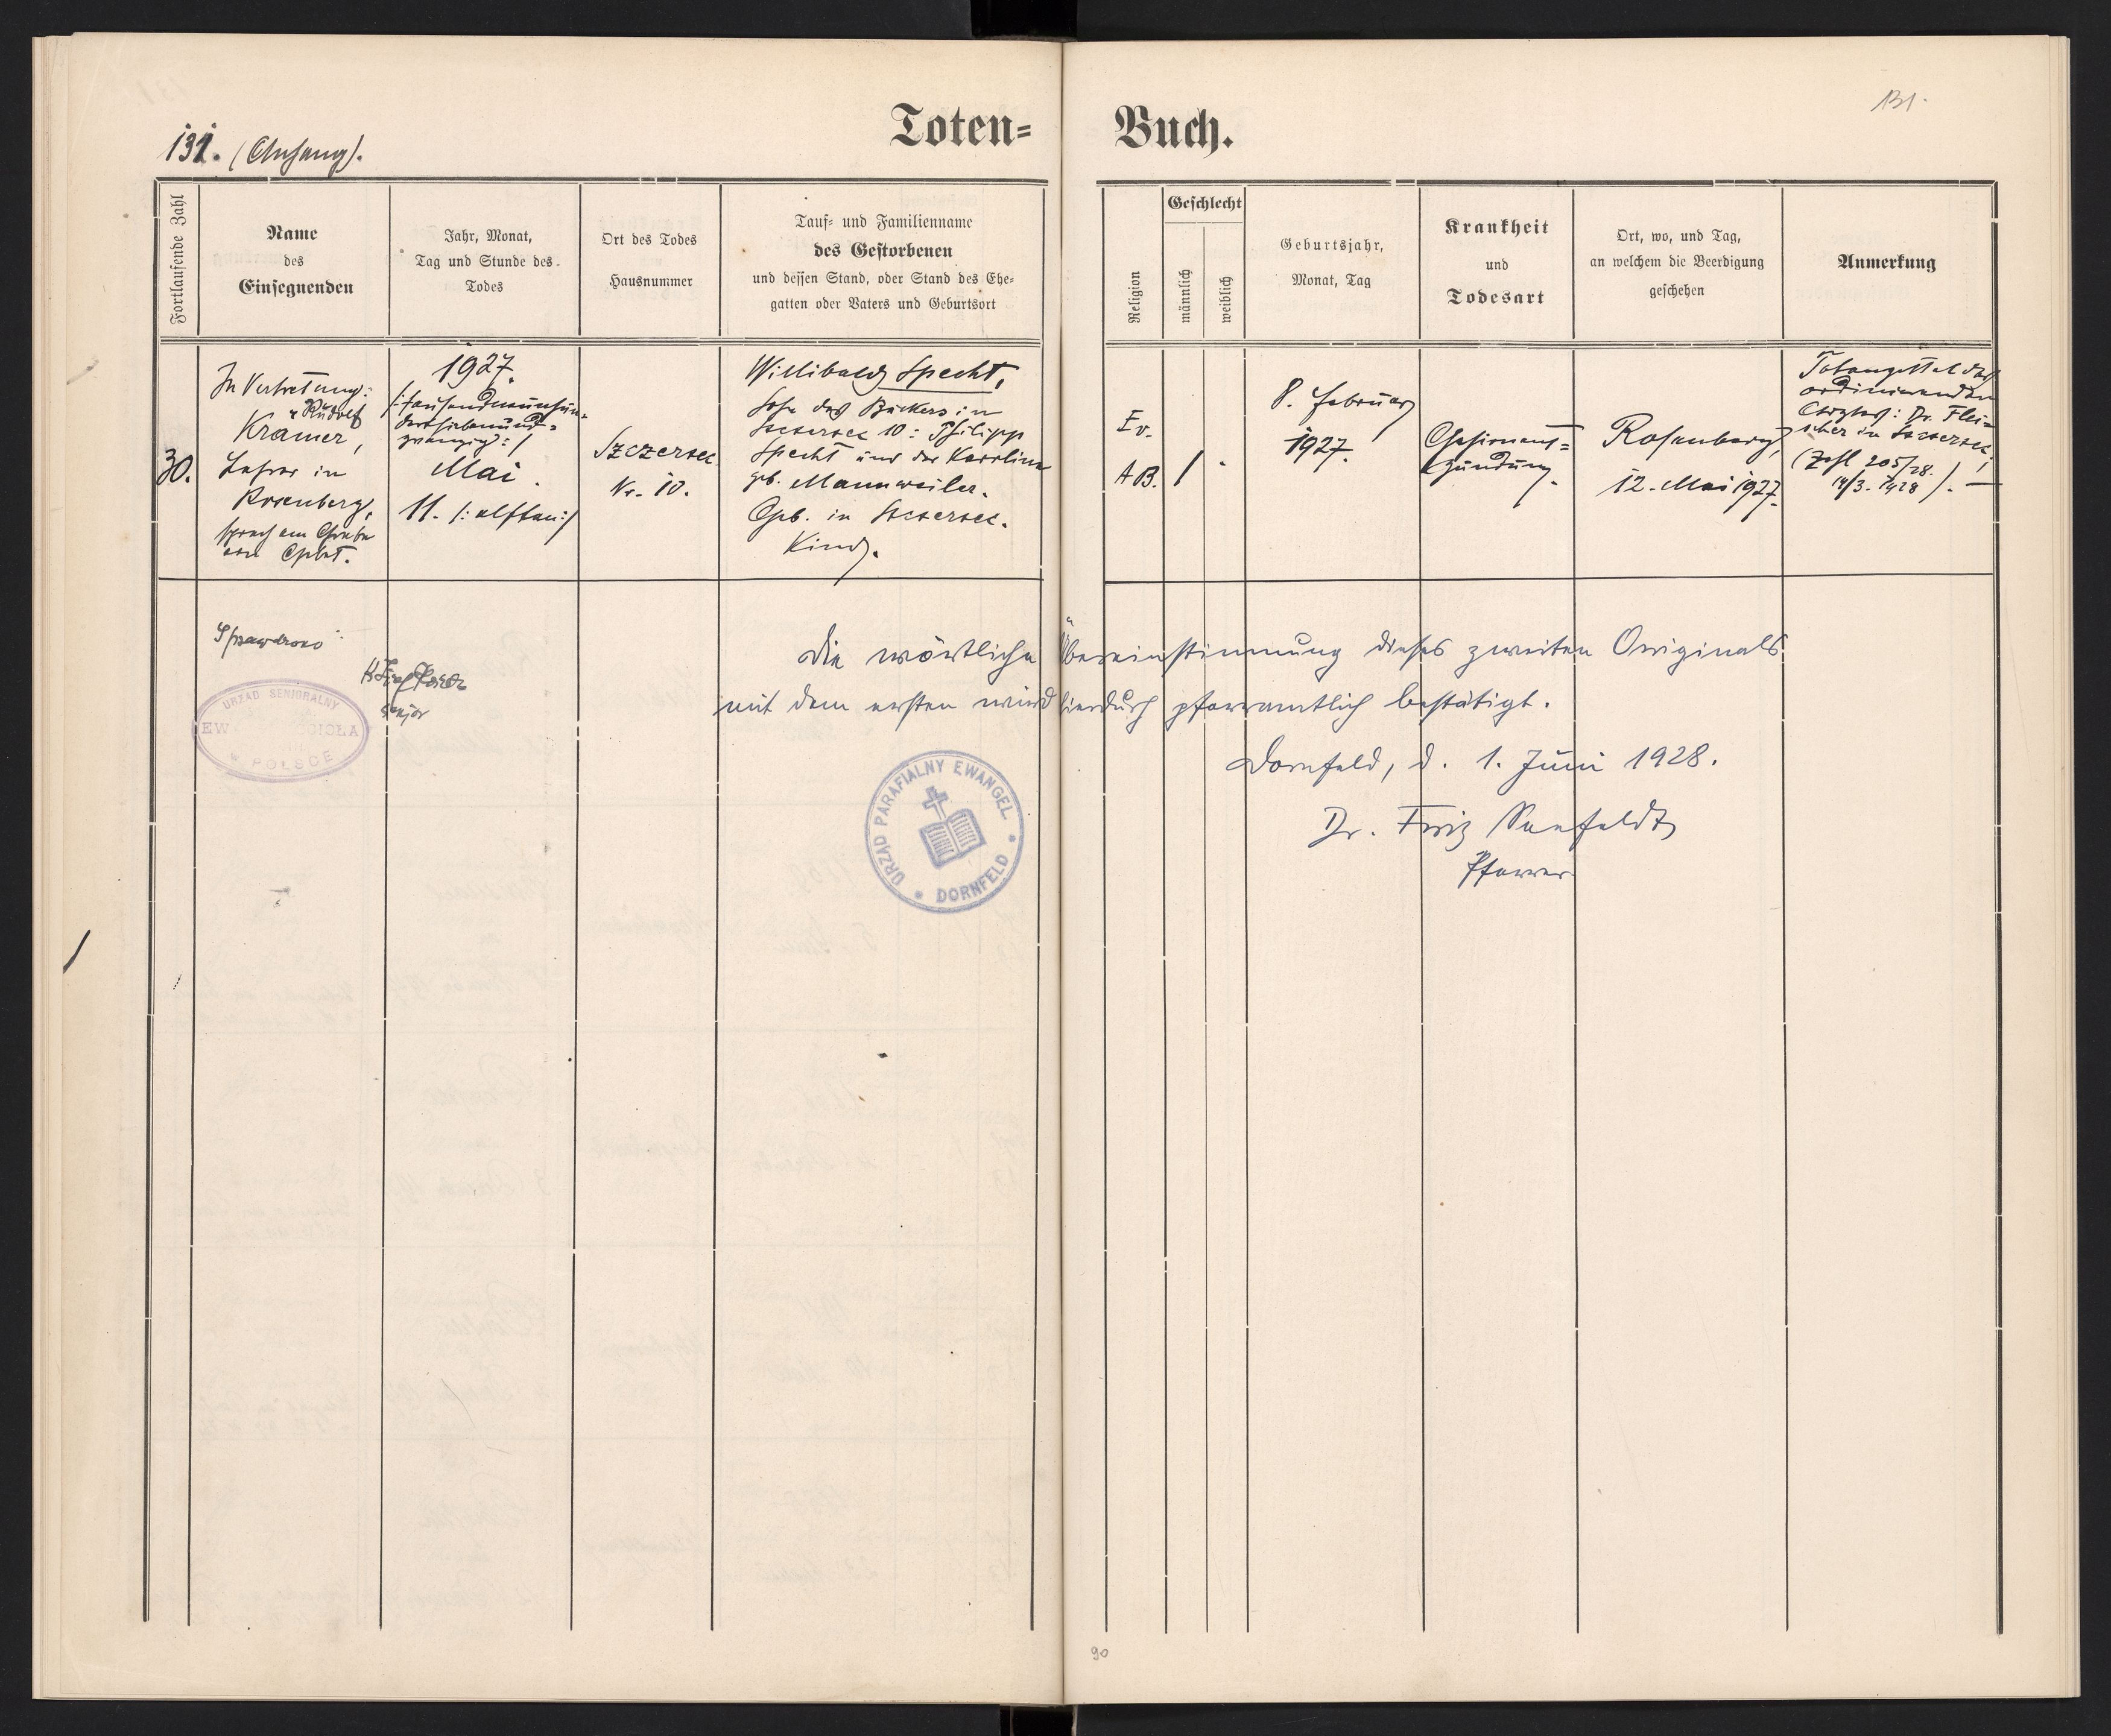 131.
131. (Anhang).
Toten= Buch.
Fortlaufende Zahl
Name
des
Einsegnenden
Jahr, Monat,
Tag und Stunde des
Todes
Ort des Todes
Hausnummer
Tauf= und Familienname
des Gestorbenen
und dessen Stand, oder Stand des Ehe=
gatten oder Vaters und Geburtsort
Religion
Geschlecht
männlich
weiblich
Geburtsjahr,
Monat, Tag
Krankheit
und
Todesart
Ort, wo, und Tag,
an welchem die Beerdigung
geschehen
Anmerkung
30.
In Vertretung:
Rudolf
Kramer,
Lehrer in
Rosenberg,
sprach am Grabe
ein Gebet.
1927.
/:tausendneunhun=
dertsiebenund=
zwanzig:/
Mai.
11. /:elften:/
Szczerzec
Nr. 10.
Willibald Specht,
Sohn des Bäckers in
Szczerzec 10: Philipp
Specht und der Karolina
geb. Mannweiler.
Geb. in Szczerzec.
Kind.
Ev.
AB.
1
8. Februar
1927.
Gehirnent=
zündung.
Rosenberg,
12. Mai 1927.
Totenzettel des
ordinierenden
Arztes: Dr. Flei=
scher in Szczerzec,
(Zahl 205/28.
14/3. 1928).
Sprawdzono:
Senjor
URZĄD SENIORALNY
EW
POLSCE
Die wörtliche Übereinstimmung dieses zweiten Originals
mit dem ersten wird hierdurch pfarramtlich bestätigt.
Dornfeld, d. 1. Juni 1928.
Dr. Fritz Seefeldt
Pfarrer
URZĄD PARAFIALNY EWANGEL.
DORNFELD
90